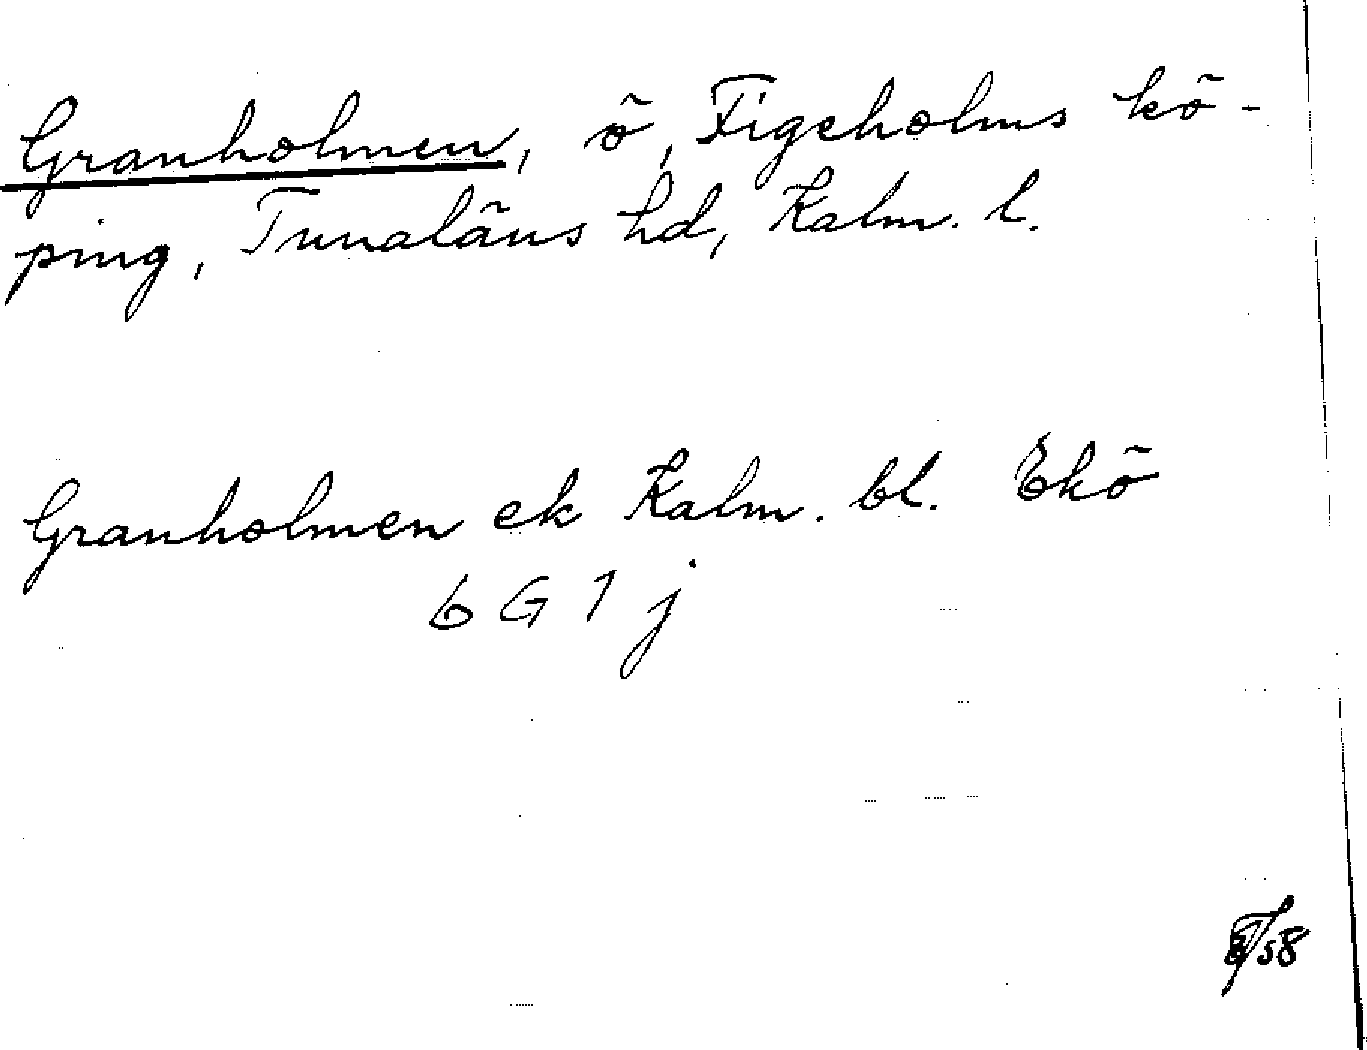 Granholmen, ö, Figeholms kö-
ping, Tunaläns hd, Kalm. l.
Granholmen ek Kalm. bl. Ekö
6 G 1 j
/58